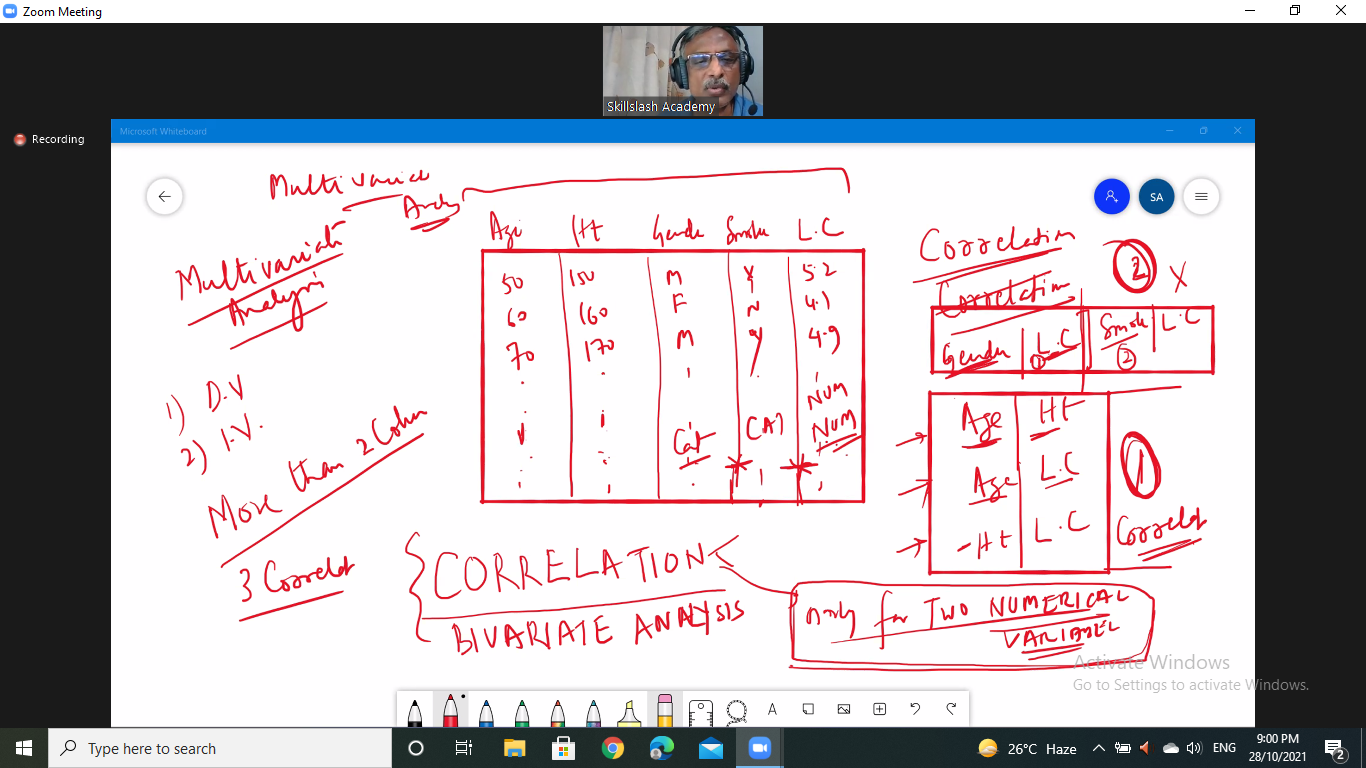 Zoom Meeting
Skillslash Academy
Recording
Microsoft Whiteboard
SA
Multivariate
Analysis
Age Ht Gende Smoke L.C
50 150 M Y 5.2
60 160 F N 4.1
70 170 M Y 4.9
NUM
Cat CAT NUM
Multivariate
Analysis
1) D.V
2) I.V.
More than 2 Colum
3 Correlat
CORRELATION
BIVARIATE ANALYSIS
only for TWO NUMERICAL
VARIABEL
Correlation
2 X
Correlation
Gender L.C Smoke L.C
1 2
Age Ht
Age L.C
- Ht L.C
1
Correlat
Activate Windows
Go to Settings to activate Windows.
A
Type here to search
26°C Haze
ENG
9:00 PM
28/10/2021
2